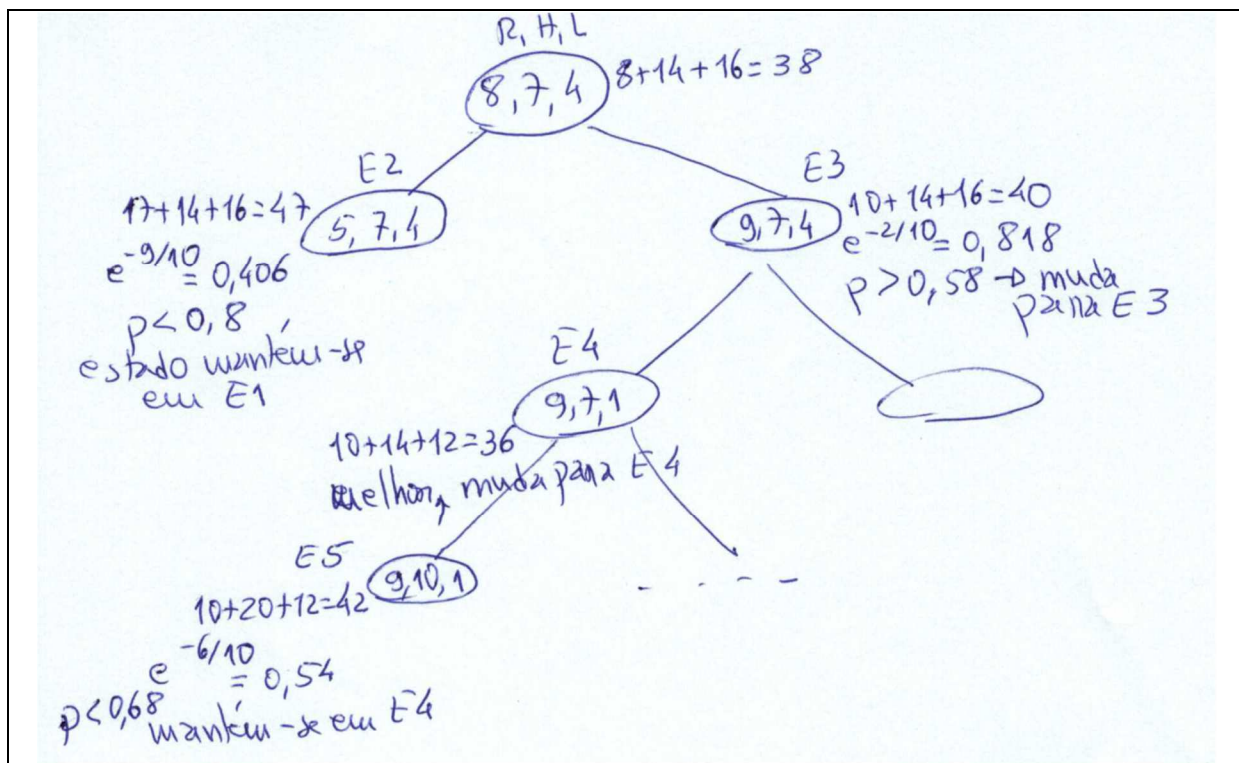 R, H, L
8,7,4 8+14+16=38
E2
17+14+16=47 5,7,4
e^-9/10 = 0,406
p<0,8
estado mantém-se
em E1
E3
9,7,4 10+14+16=40
e^-2/10 = 0,818
p>0,58 → muda
para E3
E4
9,7,1
10+14+12=36
melhor, muda para E4
E5
9,10,1
10+20+12=42
e^-6/10 = 0,54
p<0,68
mantém-se em E4
- - - -